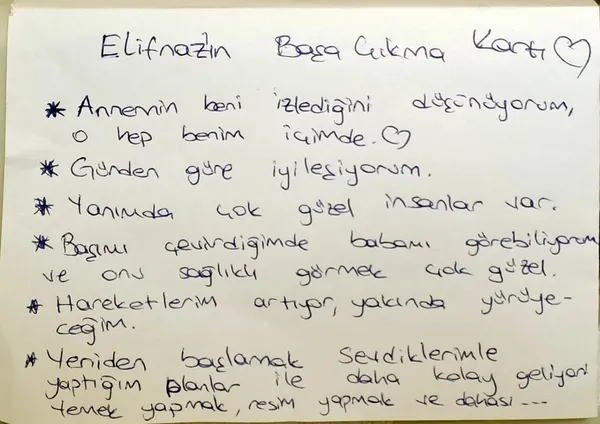 Elifnaz'ın Başa Çıkma Kartı ♡
* Annemin beni izlediğini düşünüyorum,
o hep benim içimde. ♡
* Günden güne iyileşiyorum.
* Yanımda çok güzel insanlar var.
* Başımı çevirdiğimde babamı görebiliyorum
ve onu sağlıklı görmek çok güzel.
* Hareketlerim artıyor, yakında yürüye-
ceğim.
* Yeniden başlamak sevdiklerimle
yaptığım planlar ile daha kolay geliyor!
Yemek yapmak, resim yapmak ve dahası ---